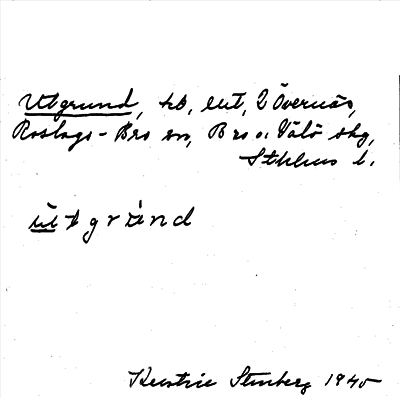 Utgrund, hd, lit, 2 Övernäs,
Roslags-Bro sn, Bro o. Vätö skg,
Sthlms l.
ùtgrùnd
Stenberg 1945